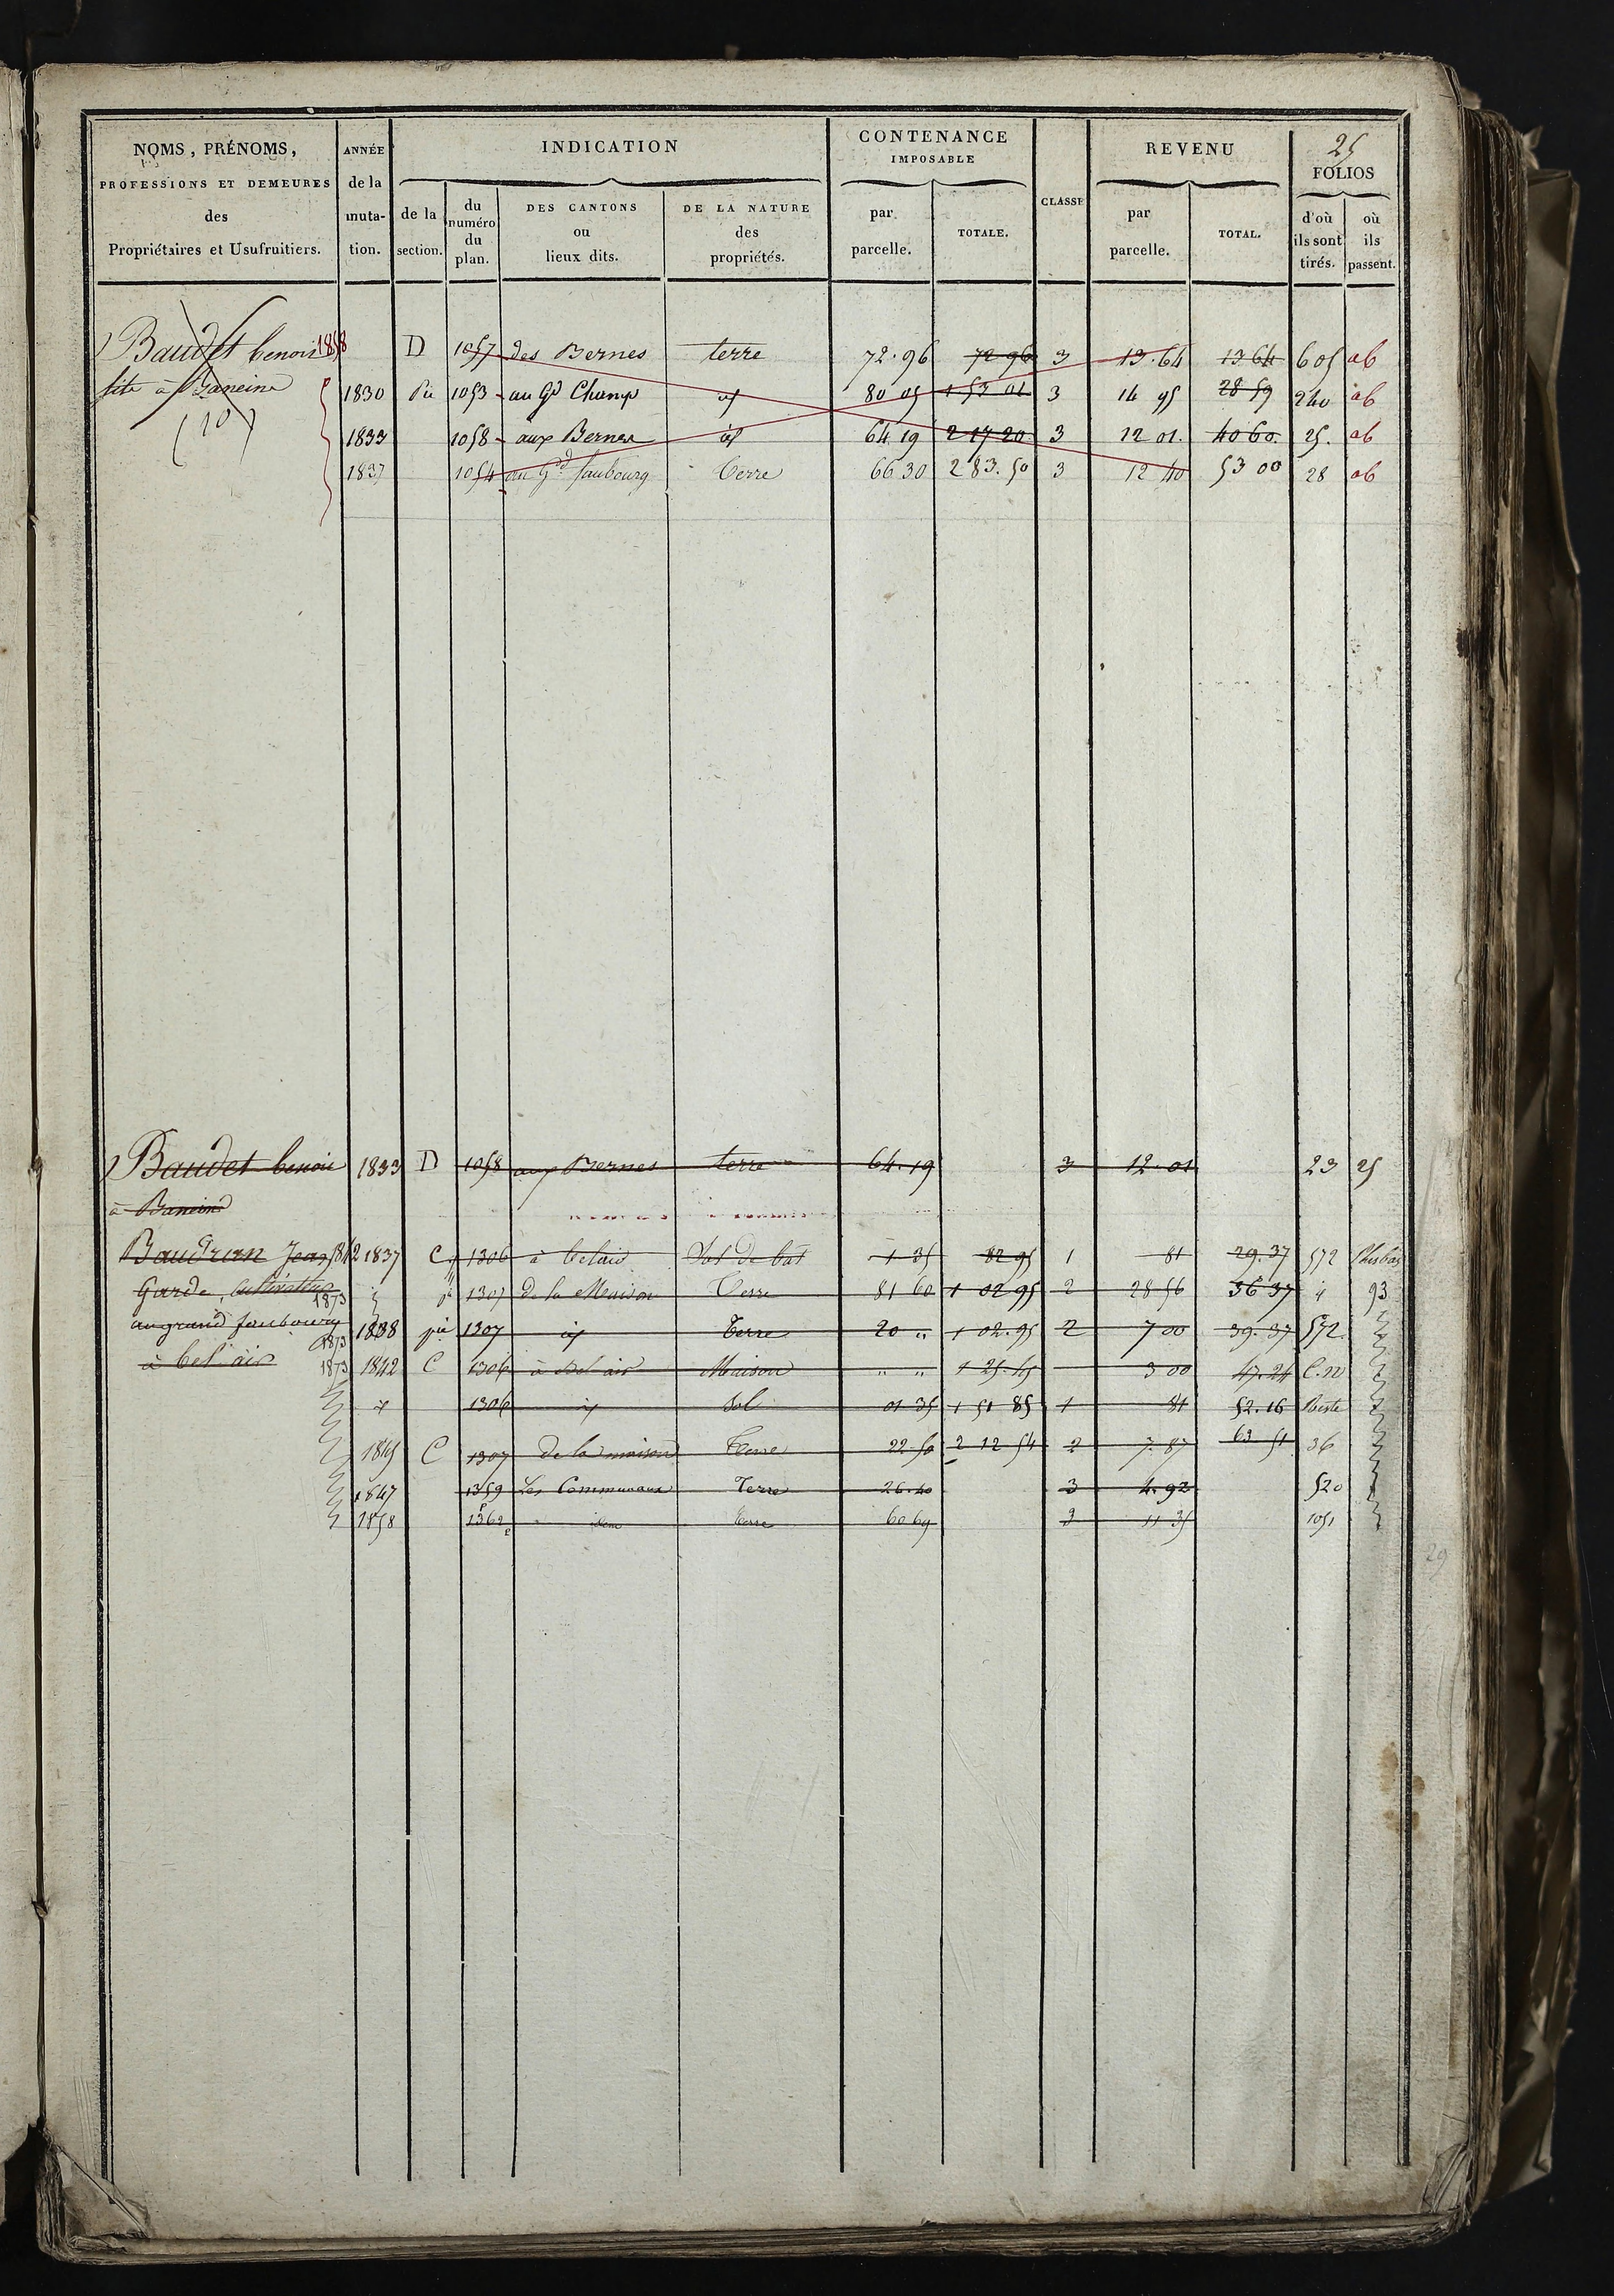 25
NOMS, PRÉNOMS, PROFESSIONS ET DEMEURES des Propriétaires et Usufruitiers.
ANNÉE de la muta- tion.
INDICATION
de la section.
du numéro du plan.
DES CANTONS ou lieux dits.
DE LA NATURE des propriétés.
CONTENANCE IMPOSABLE
par parcelle.
TOTALE.
CLASSE
REVENU
par parcelle.
TOTAL.
FOLIOS
d'où ils sont tirés.
où ils passent.
Baudet benoit 1858 D 1057 des Bernes terre 72.96 72 96 3 13.64 13 64 605 26
à Baneins 1830 1053 au Gd Champ id 80 05 1 53 01 3 14 95 28 59 240 26
(10) 1833 1058 aux Bernes id 64 19 2 17 20 3 12 01. 40 60. 25. 26
1837 1054 au Gd faubourg terre 66 30 2 83.50 3 12 40 53 00 28 26
Baudet benoit 1833 D 1058 aux Bernes terre 64.19 3 12.01 23 25
à Baneins
Baudran Jean 1842 1837 C 1306 à belair Sol de bat 1 35 82 95 1 81 29.37 572 Plus bas
Garde, cultivateur 1873 1307 de la Maison Terre 81 60 1 02 95 2 28 56 36 37 93
au grand faubourg 1873 1838 pie 1307 id Terre 20 " 1 02.95 2 7 00 39.37 572
à bel air 1873 1842 C 1306 à Bel air Maison " " 1 25.45 3 00 47.24 C.N
1306 id Sol 01 35 1 51 85 1 81 52.16 Reste
1845 C 1307 de la maison Terre 22.50 2 12 54 2 7.87 63 51 36
1847 1359 Les Communaux Terre 26.40 3 4.92 520
1858 1362 idem terre 60 69 3 11 35 1051
29